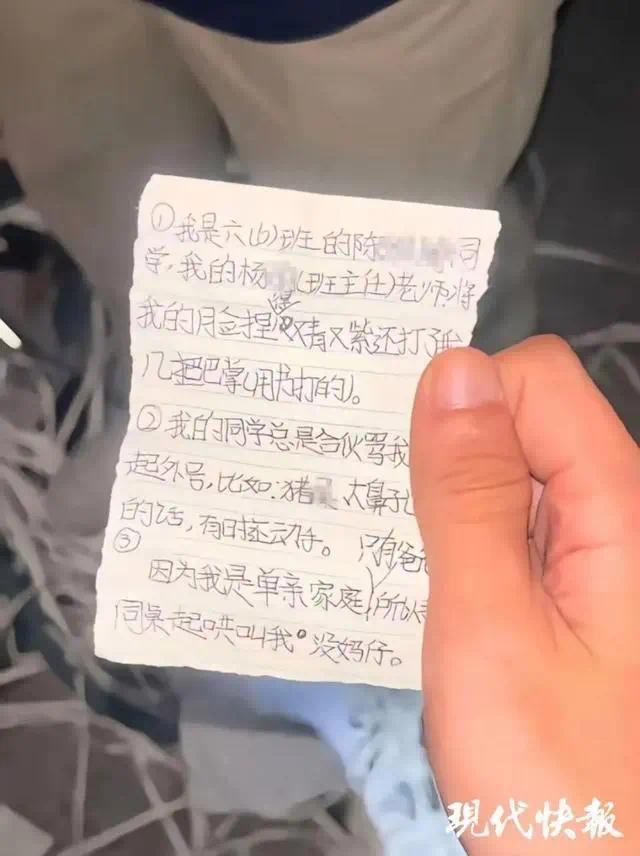 ①我是六(6)班的陈 同
学,我的杨 (班主任)老师将
得
我的脸捏 又青又紫还打了我
几把巴掌(用书打的)。
②我的同学总是合伙骂我
起外号,比如:猪 大鼻孔
的话,有时还动手。 只有爸
③
因为我是单亲家庭,所以
同桌起哄叫我"没妈仔。
现代快報